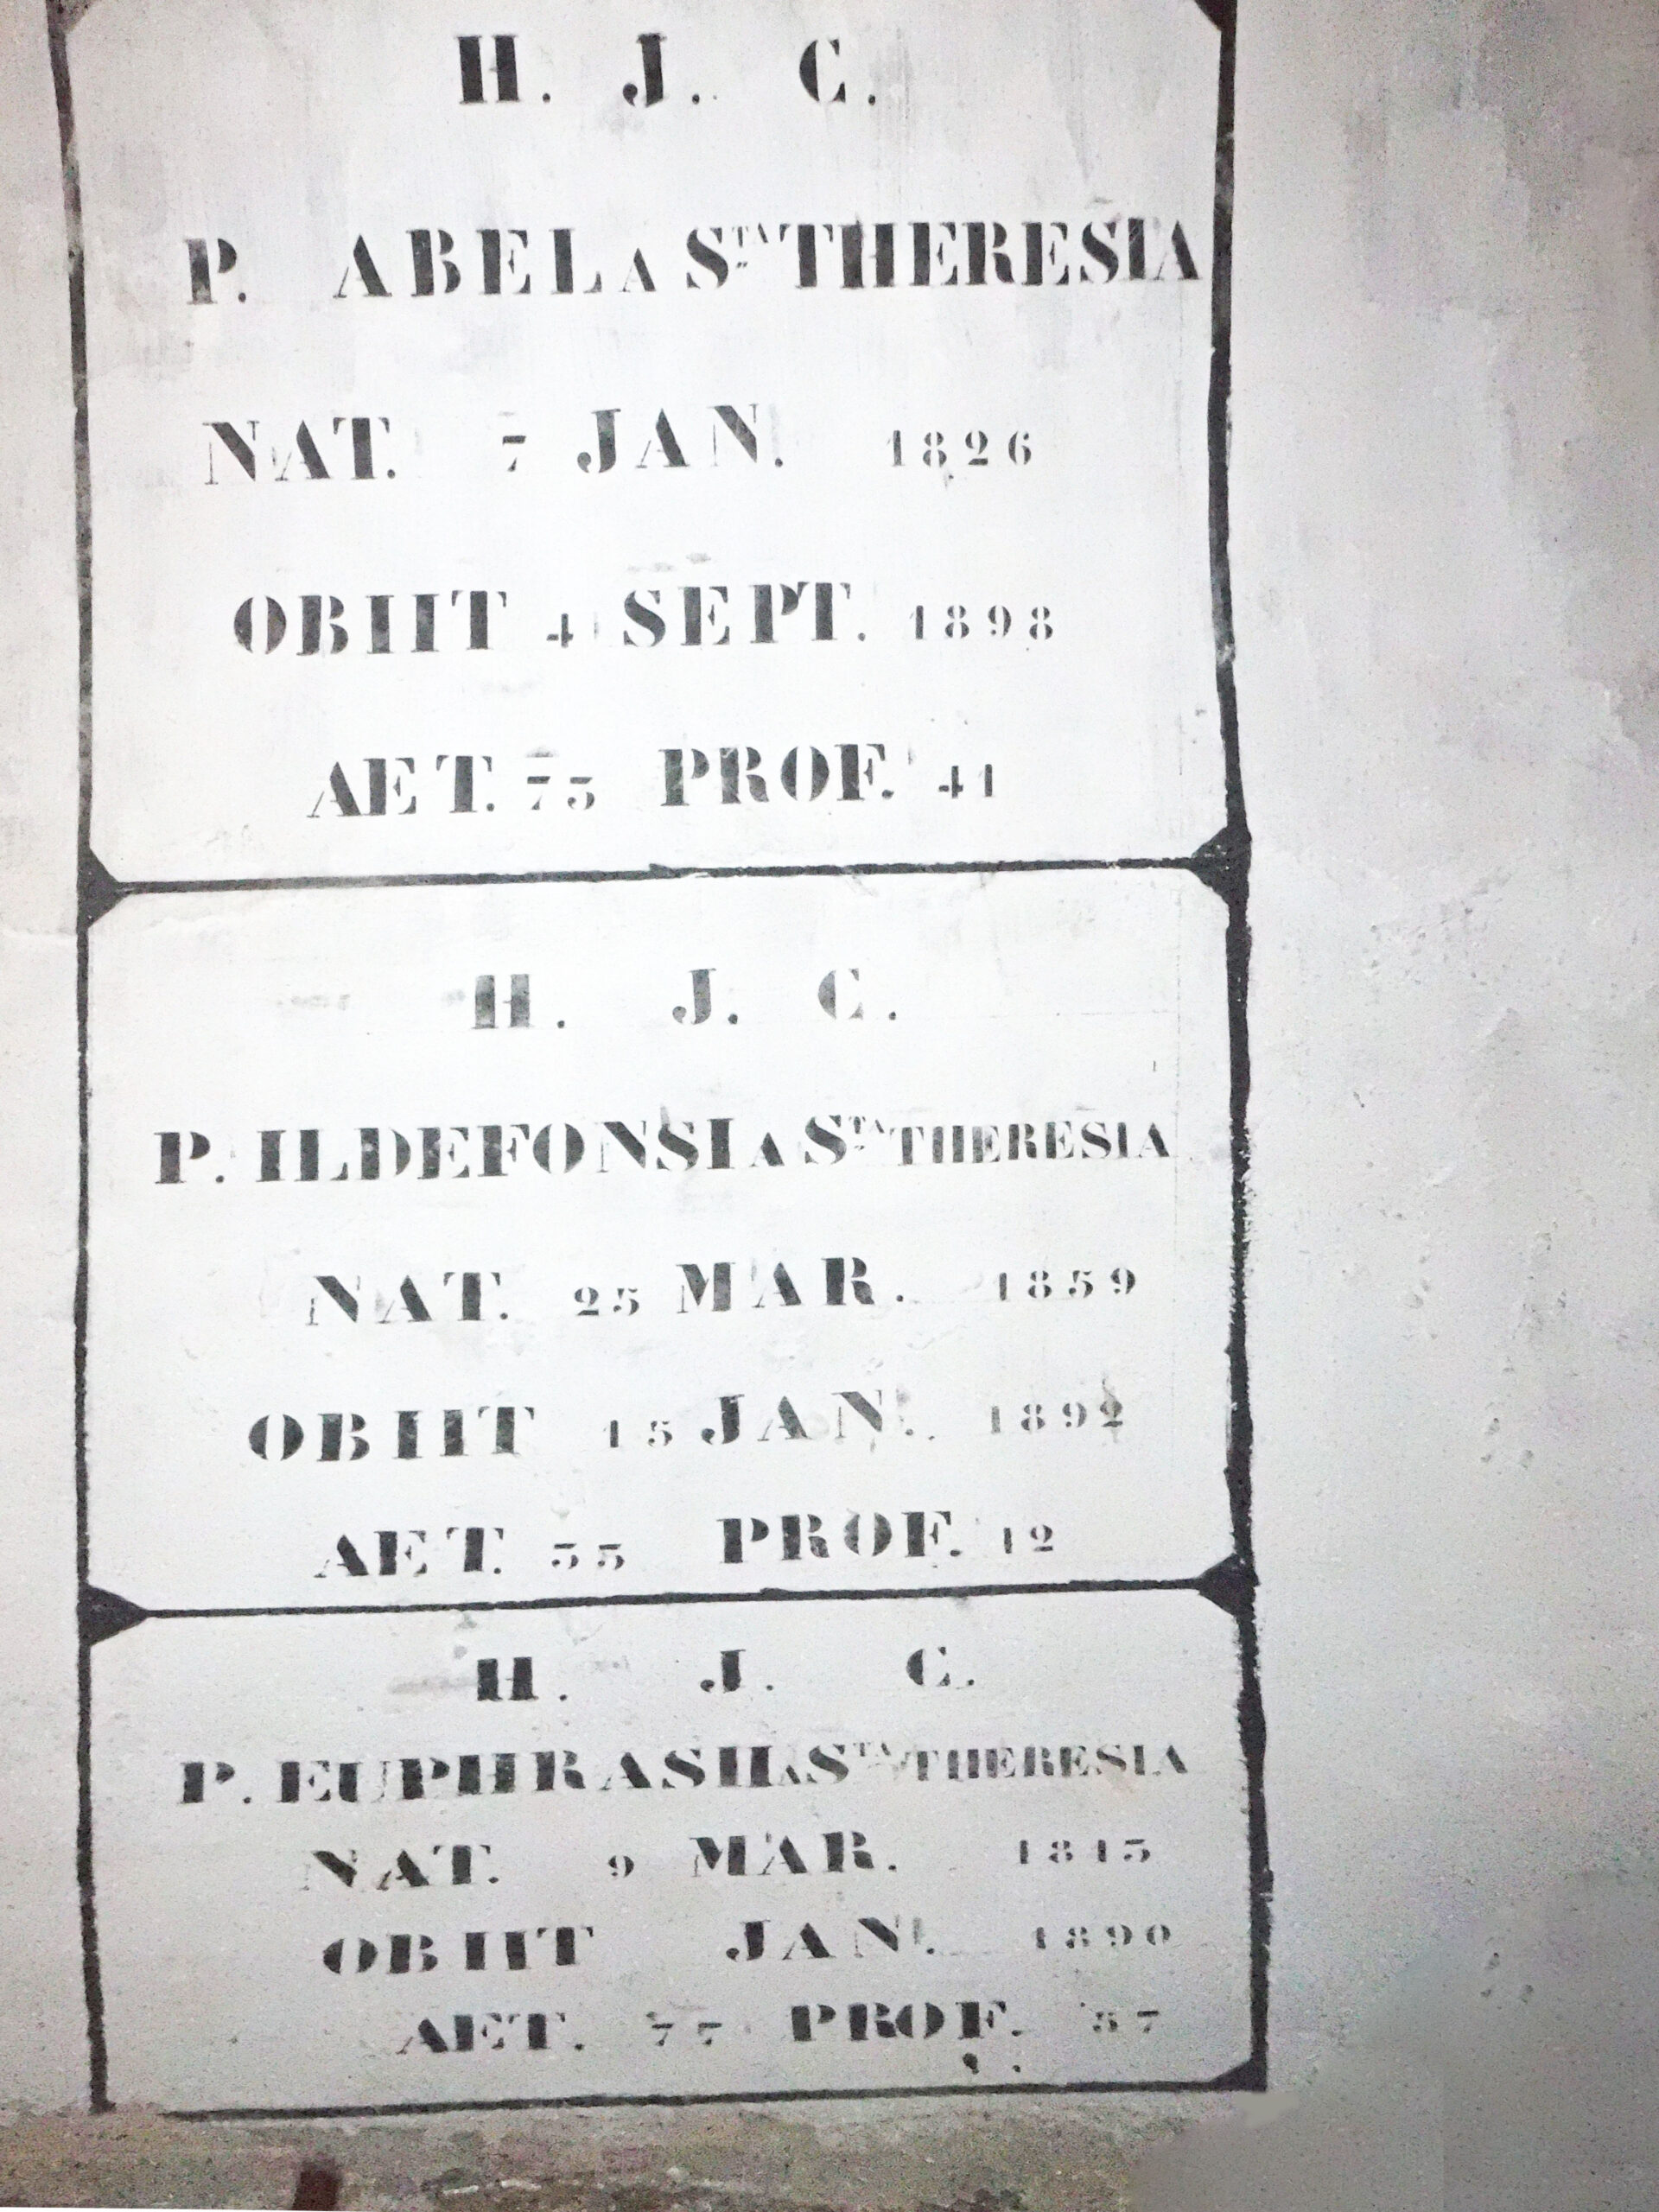 H. J. C.
P. ABEL A STA THERESIA
NAT. 7 JAN. 1826
OBIIT 4 SEPT. 1898
AET. 73 PROF. 41
H. J. C.
P. ILDEFONSI A STA THERESIA
NAT. 25 MAR. 1859
OBIIT 15 JAN. 1892
AET. 33 PROF. 12
H. J. C.
P. EUPHRASII A STA THERESIA
NAT. 9 MAR. 1813
OBIIT JAN. 1890
AET. 77 PROF. 57